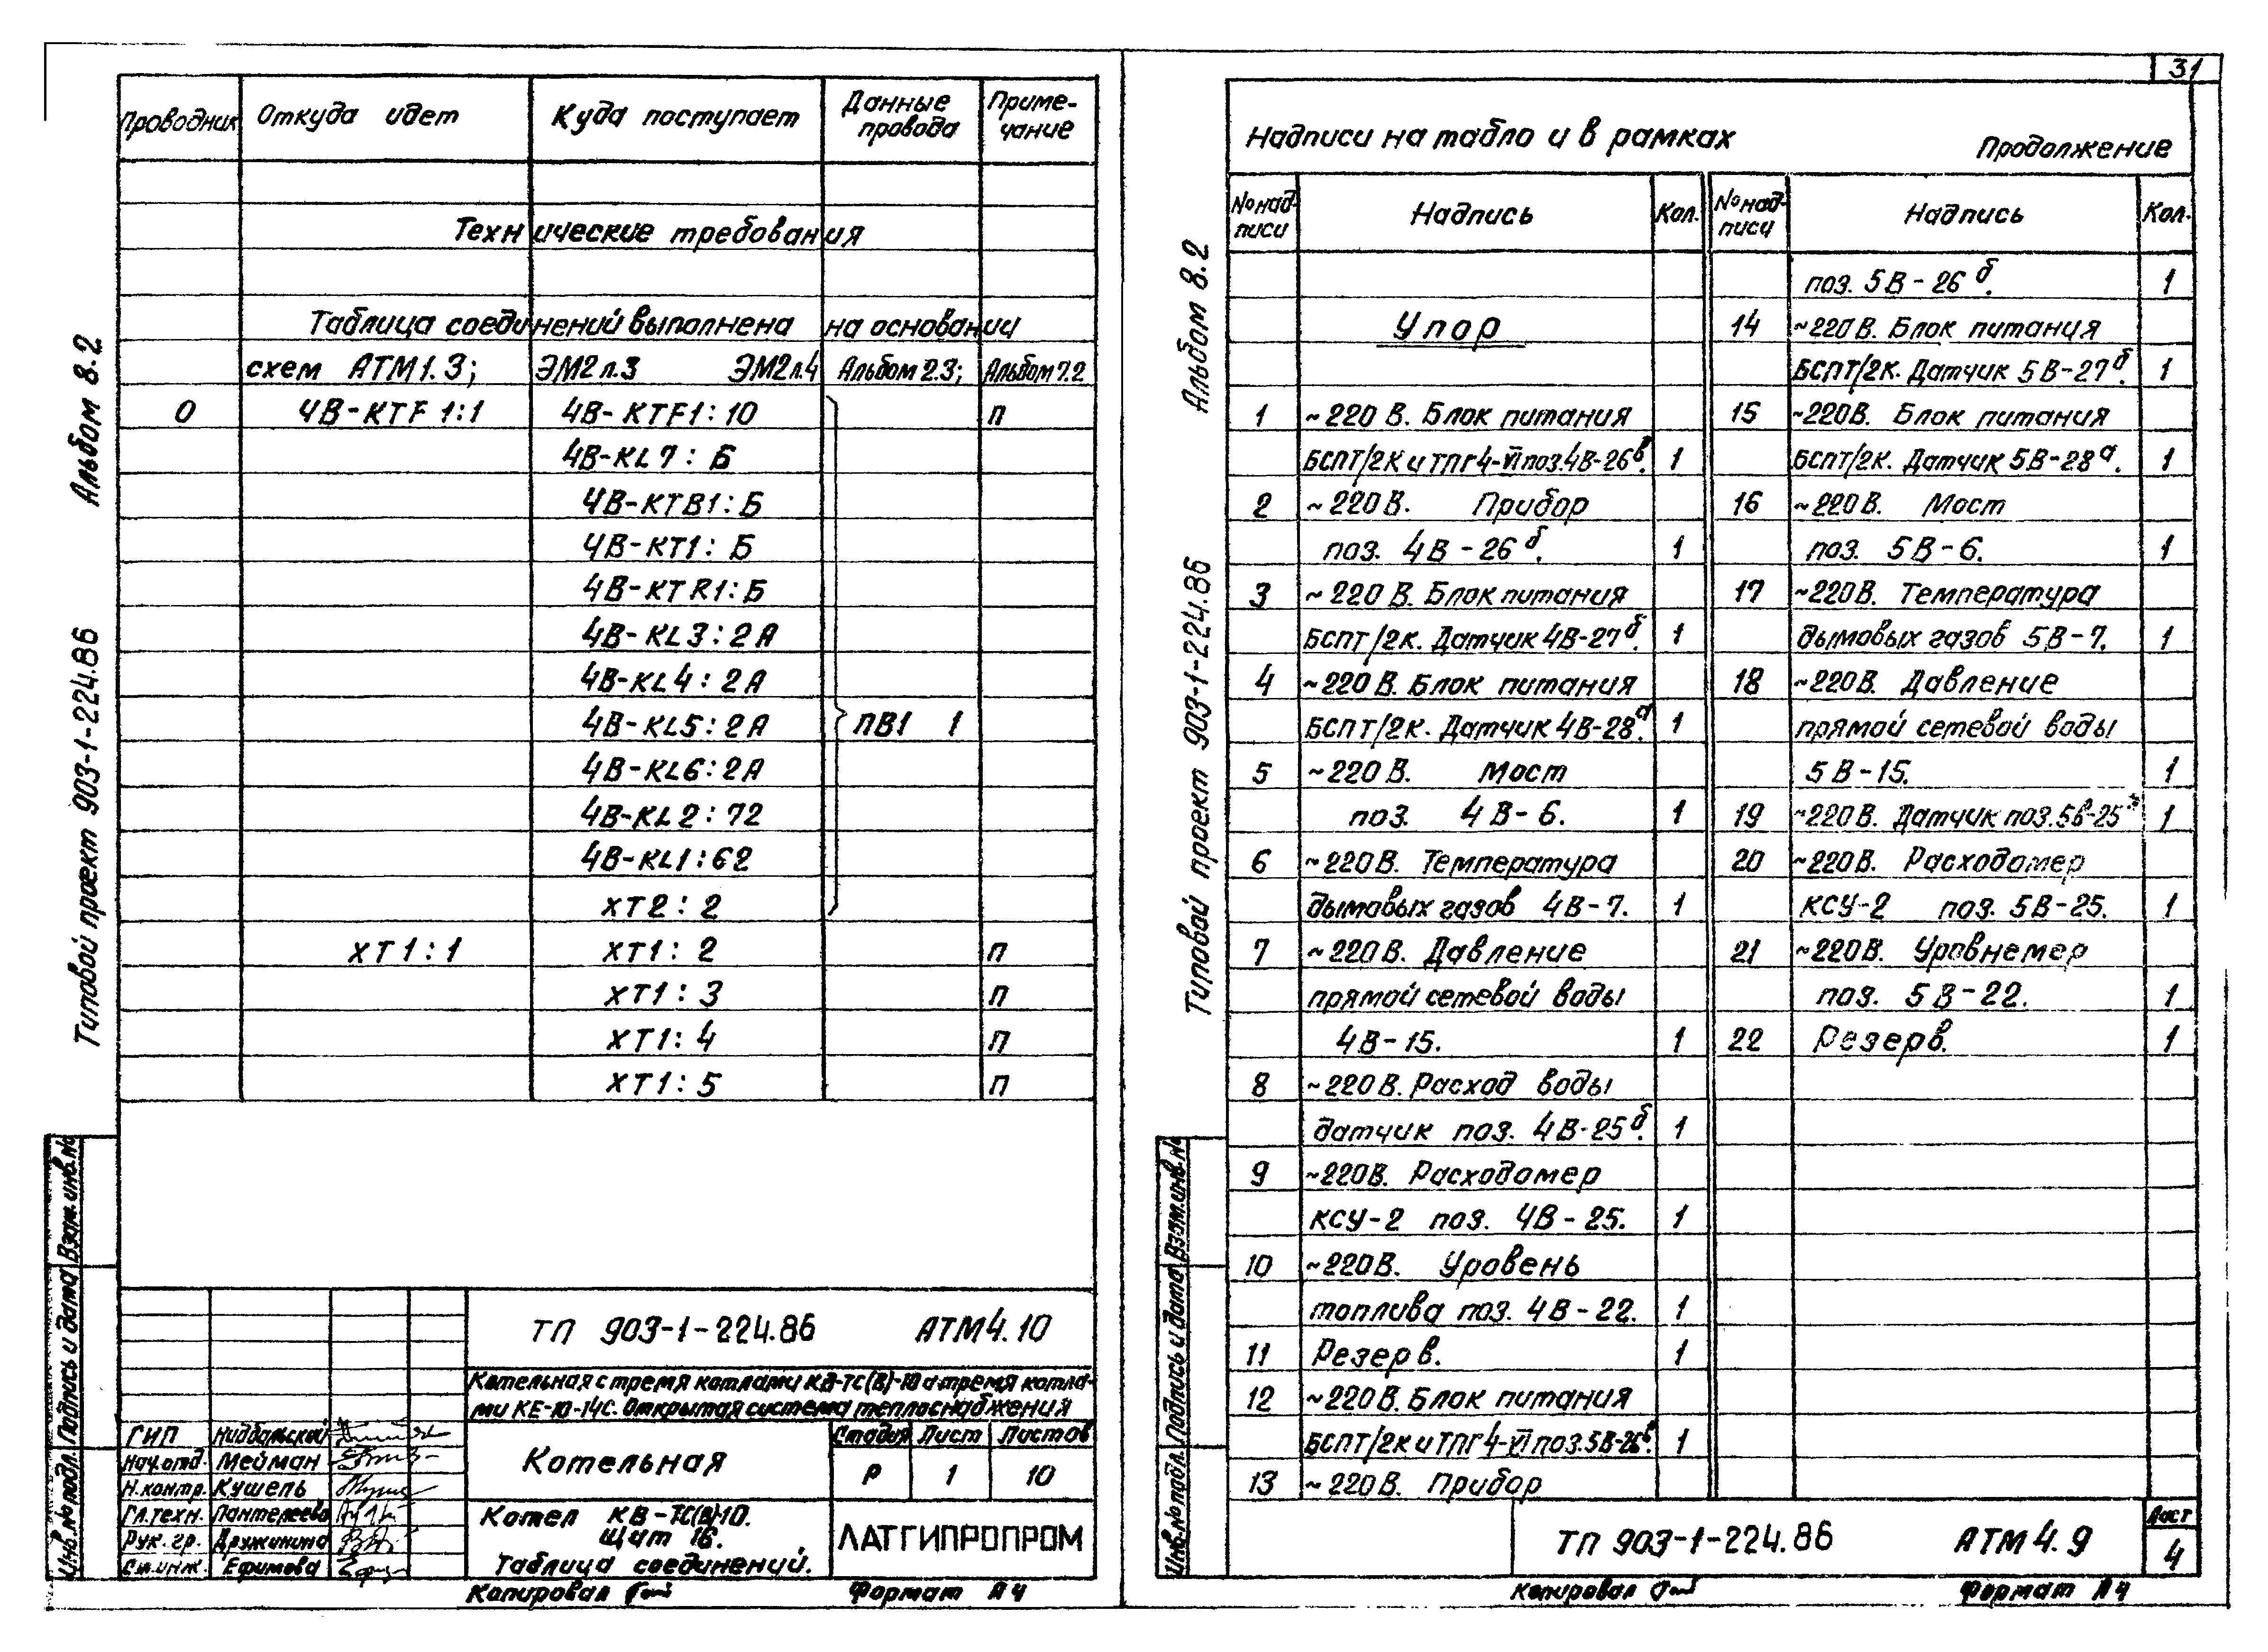 31
Альбом 8.2
Типовой проект 903-1-224.86
Проводник Откуда идет Куда поступает Данные провода Примечание
Технические требования
Таблица соединений выполнена на основании
схем АТМ1.3; ЭМ2л.3 ЭМ2л.4 Альбом 2.3; Альбом 7.2
0 4В-КТF 1:1 4В-КТF1:10 п
4В-KL7:Б
4В-КТВ1:Б
4В-КТ1:Б
4В-КТR1:Б
4В-KL3:2А
4В-KL4:2А
4В-KL5:2А ПВ1 1
4В-KL6:2А
4В-KL2:72
4В-KL1:62
ХТ2:2
ХТ1:1 ХТ1:2 п
ХТ1:3 п
ХТ1:4 п
ХТ1:5 п
Инв.№ подл. Подпись и дата Взам.инв.№
ТП 903-1-224.86 АТМ4.10
Котельная с тремя котлами КВ-ТС(В)-10 и тремя котла-
ми КЕ-10-14С. Открытая система теплоснабжения
ГИП
Нач.отд. Мейман
Н.контр. Кушель
Гл.техн. Пантелеева
Рук.гр. Дружинина
Ст.инж. Ефимова
Котельная
Стадия Лист Листов
Р 1 10
Котел КВ-ТС(В)-10.
Щит 16.
Таблица соединений.
ЛАТГИПРОПРОМ
Копировал Формат А4
Альбом 8.2
Типовой проект 903-1-224.86
Надписи на табло и в рамках Продолжение
№ над-писи Надпись Кол. № над-писи Надпись Кол.
Упор
1 ~220 В. Блок питания
БСПТ/2К и ТПГ4-VI поз.4В-26в. 1
2 ~220 В. Прибор
поз. 4В-26б. 1
3 ~220 В. Блок питания
БСПТ/2К. Датчик 4В-27б. 1
4 ~220 В. Блок питания
БСПТ/2К. Датчик 4В-28а. 1
5 ~220 В. Мост
поз. 4В-6. 1
6 ~220 В. Температура
дымовых газов 4В-7. 1
7 ~220 В. Давление
прямой сетевой воды
4В-15. 1
8 ~220 В. Расход воды
датчик поз. 4В-25б. 1
9 ~220В. Расходомер
КСУ-2 поз. 4В-25. 1
10 ~220В. Уровень
топлива поз. 4В-22. 1
11 Резерв. 1
12 ~220 В. Блок питания
БСПТ/2К и ТПГ4-VI поз.5В-26в. 1
13 ~220 В. Прибор
поз. 5В-26б. 1
14 ~220 В. Блок питания
БСПТ/2К. Датчик 5В-27б. 1
15 ~220В. Блок питания
БСПТ/2К. Датчик 5В-28а. 1
16 ~220 В. Мост
поз. 5В-6. 1
17 ~220В. Температура
дымовых газов 5В-7. 1
18 ~220В. Давление
прямой сетевой воды
5В-15. 1
19 ~220 В. Датчик поз.5В-25 1
20 ~220В. Расходомер
КСУ-2 поз. 5В-25. 1
21 ~220В. Уровнемер
поз. 5В-22. 1
22 Резерв. 1
Инв.№ подл. Подпись и дата Взам.инв.№
ТП 903-1-224.86 АТМ4.9
Лист
4
Копировал Формат А4